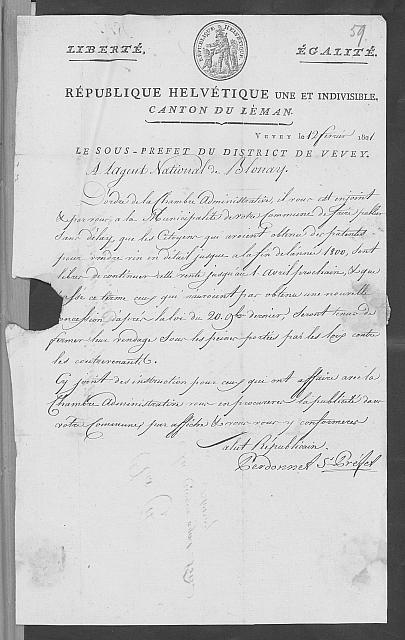 59.
RÉPUBLIQUE HELVÉTIQUE
LIBERTÉ. ÉGALITÉ.
RÉPUBLIQUE HELVÉTIQUE UNE ET INDIVISIBLE.
CANTON DU LÉMAN.
VEVEY le 12 fevrier 1801
LE SOUS-PREFET DU DISTRICT DE VEVEY.
A l'agent National de Blonay.
D'ordre de la Chambre Administrative, il vous est enjoint
& par vous, a la Municipalité de votre commune de faire publier
sans delay, que les Citoyens qui avoient obtenu des patentes
pour vendre vin en detail jusques a la fin de l'année 1800, sont
libres de continuer cette vente jusqu'au 1 Avril prochain, & que
ce terme ceux qui n'auroient pas obtenu une nouvelle
concession d'après la loi du 20. 9bre dernier, seront tenus de
fermer leur vendage sous les peines portées par les loix contre
les contrevenants.
Cy joint des instruction pour ceux qui ont affaire avec la
Chambre Administrative vous en procurerez la publicité dans
votre Commune, par affiche & vous vous y conformerez
Salut Républicain.
Perdonnet Ss Préfet